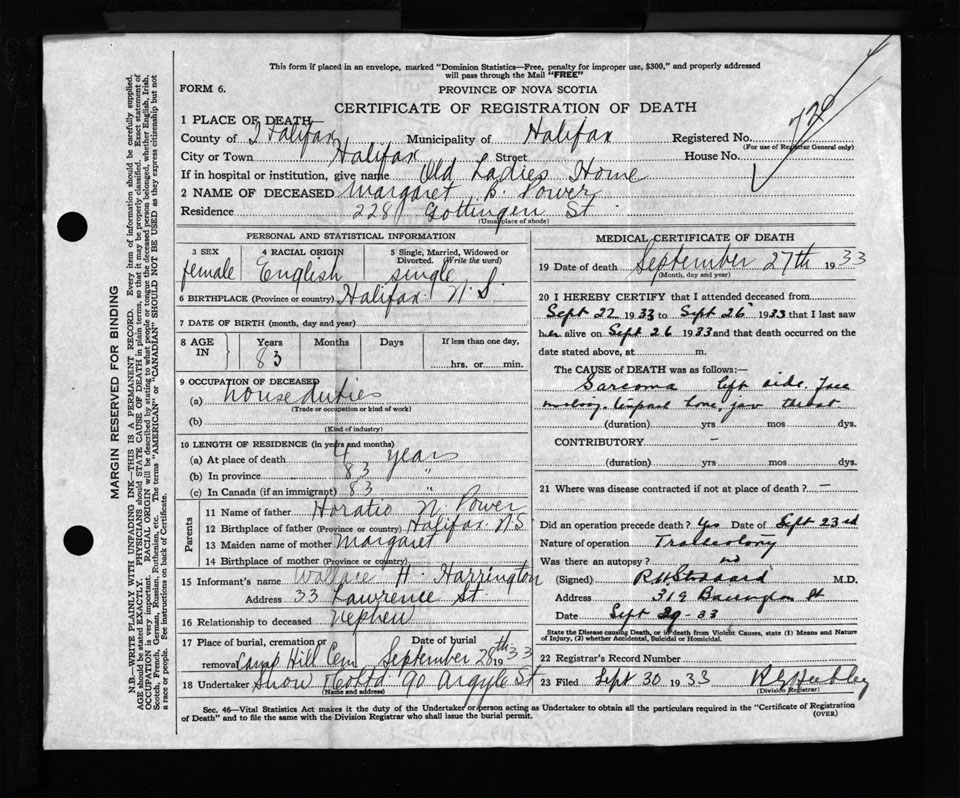 This form if placed in an envelope, marked "Dominion Statistics—Free, penalty for improper use, $300," and properly addressed
will pass through the Mail "FREE"
FORM 6.
PROVINCE OF NOVA SCOTIA
CERTIFICATE OF REGISTRATION OF DEATH
1 PLACE OF DEATH—
County of Halifax Municipality of Halifax Registered No.
(For use of Registrar General only)
City or Town Halifax Street House No.
If in hospital or institution, give name Old Ladies Home
2 NAME OF DECEASED Margaret B. Power
Residence 228 Gottingen St
(Usual place of abode)
PERSONAL AND STATISTICAL INFORMATION
3 SEX 4 RACIAL ORIGIN 5 Single, Married, Widowed or
Divorced. (Write the word)
female English single
6 BIRTHPLACE (Province or country) Halifax N.S.
7 DATE OF BIRTH (month, day and year)
8 AGE IN Years Months Days If less than one day,
83 hrs. or min.
9 OCCUPATION OF DECEASED
(a) house duties
(Trade or occupation or kind of work)
(b)
(Kind of industry)
10 LENGTH OF RESIDENCE (in years and months)
(a) At place of death 4 years
(b) In province 83 "
(c) In Canada (if an immigrant) 83 "
Parents
11 Name of father Horatio N. Power
12 Birthplace of father (Province or country) Halifax N.S
13 Maiden name of mother Margaret
14 Birthplace of mother (Province or country)
15 Informant's name Wallace H. Harrington
Address 33 Lawrence St
16 Relationship to deceased nephew
17 Place of burial, cremation or Date of burial
removal Camp Hill Cem September 28th 1933
18 Undertaker Snow & Co Ltd 90 Argyle St
(Name and address)
MEDICAL CERTIFICATE OF DEATH
19 Date of death September 27th 1933
(Month, day and year)
20 I HEREBY CERTIFY that I attended deceased from
Sept 22 1933 to Sept 26 1933 that I last saw
her alive on Sept 26 1933 and that death occurred on the
date stated above, at m.
The CAUSE of DEATH was as follows:—
Sarcoma left side face
bone, jaw throat
(duration) yrs mos dys.
CONTRIBUTORY —
(duration) yrs mos dys.
21 Where was disease contracted if not at place of death? —
Did an operation precede death? Yes Date of Sept 23rd
Nature of operation
Was there an autopsy? no
(Signed) M.D.
Address 319 Barrington St
Date Sept 29-33
State the Disease causing Death, or in death from Violent Causes, state (1) Means and Nature
of Injury, (2) whether Accidental, Suicidal or Homicidal.
22 Registrar's Record Number
23 Filed Sept 30 1933
(Division Registrar)
Sec. 46—Vital Statistics Act makes it the duty of the Undertaker or person acting as Undertaker to obtain all the particulars required in the "Certificate of Registration
of Death" and to file the same with the Division Registrar who shall issue the burial permit. (OVER)
MARGIN RESERVED FOR BINDING
N.B.—WRITE PLAINLY WITH UNFADING INK—THIS IS A PERMANENT RECORD. Every item of information should be carefully supplied.
AGE should be stated EXACTLY. PHYSICIANS should STATE CAUSE OF DEATH in plain terms, so that it may be properly classified. Exact statement of
OCCUPATION is very important. RACIAL ORIGIN will be described by stating to what people or tongue the deceased person belonged, whether English, Irish,
Scotch, French, German, Russian, Ruthenian, etc. The terms "AMERICAN" or "CANADIAN" SHOULD NOT BE USED as they express citizenship but not
a race or people. See instructions on back of Certificate.